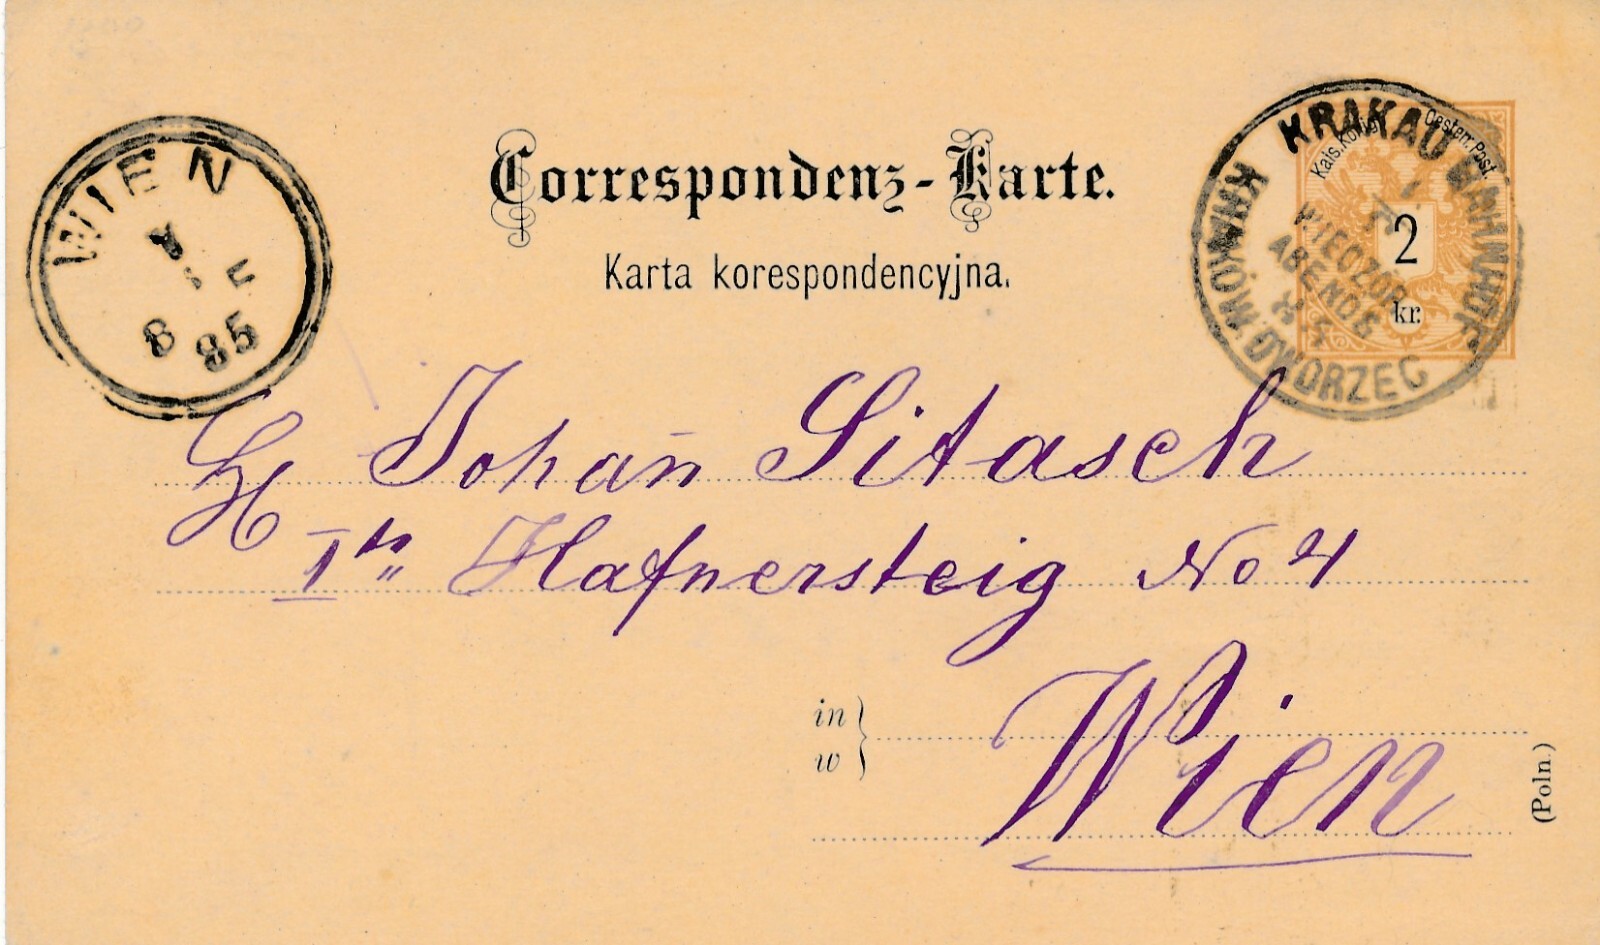 Correspondenz-Karte.
Karta korespondencyjna.
WIEN
8 5
8 85
KRAKAU BAHNHOF.
KRAKÓW. DWORZEC
WIECZÓR
ABENDS
Kais. Königl. Oesterr. Post.
2
kr.
Johan̄ Sitasch
Hafnersteig No 4
in
w
Wien
(Poln.)